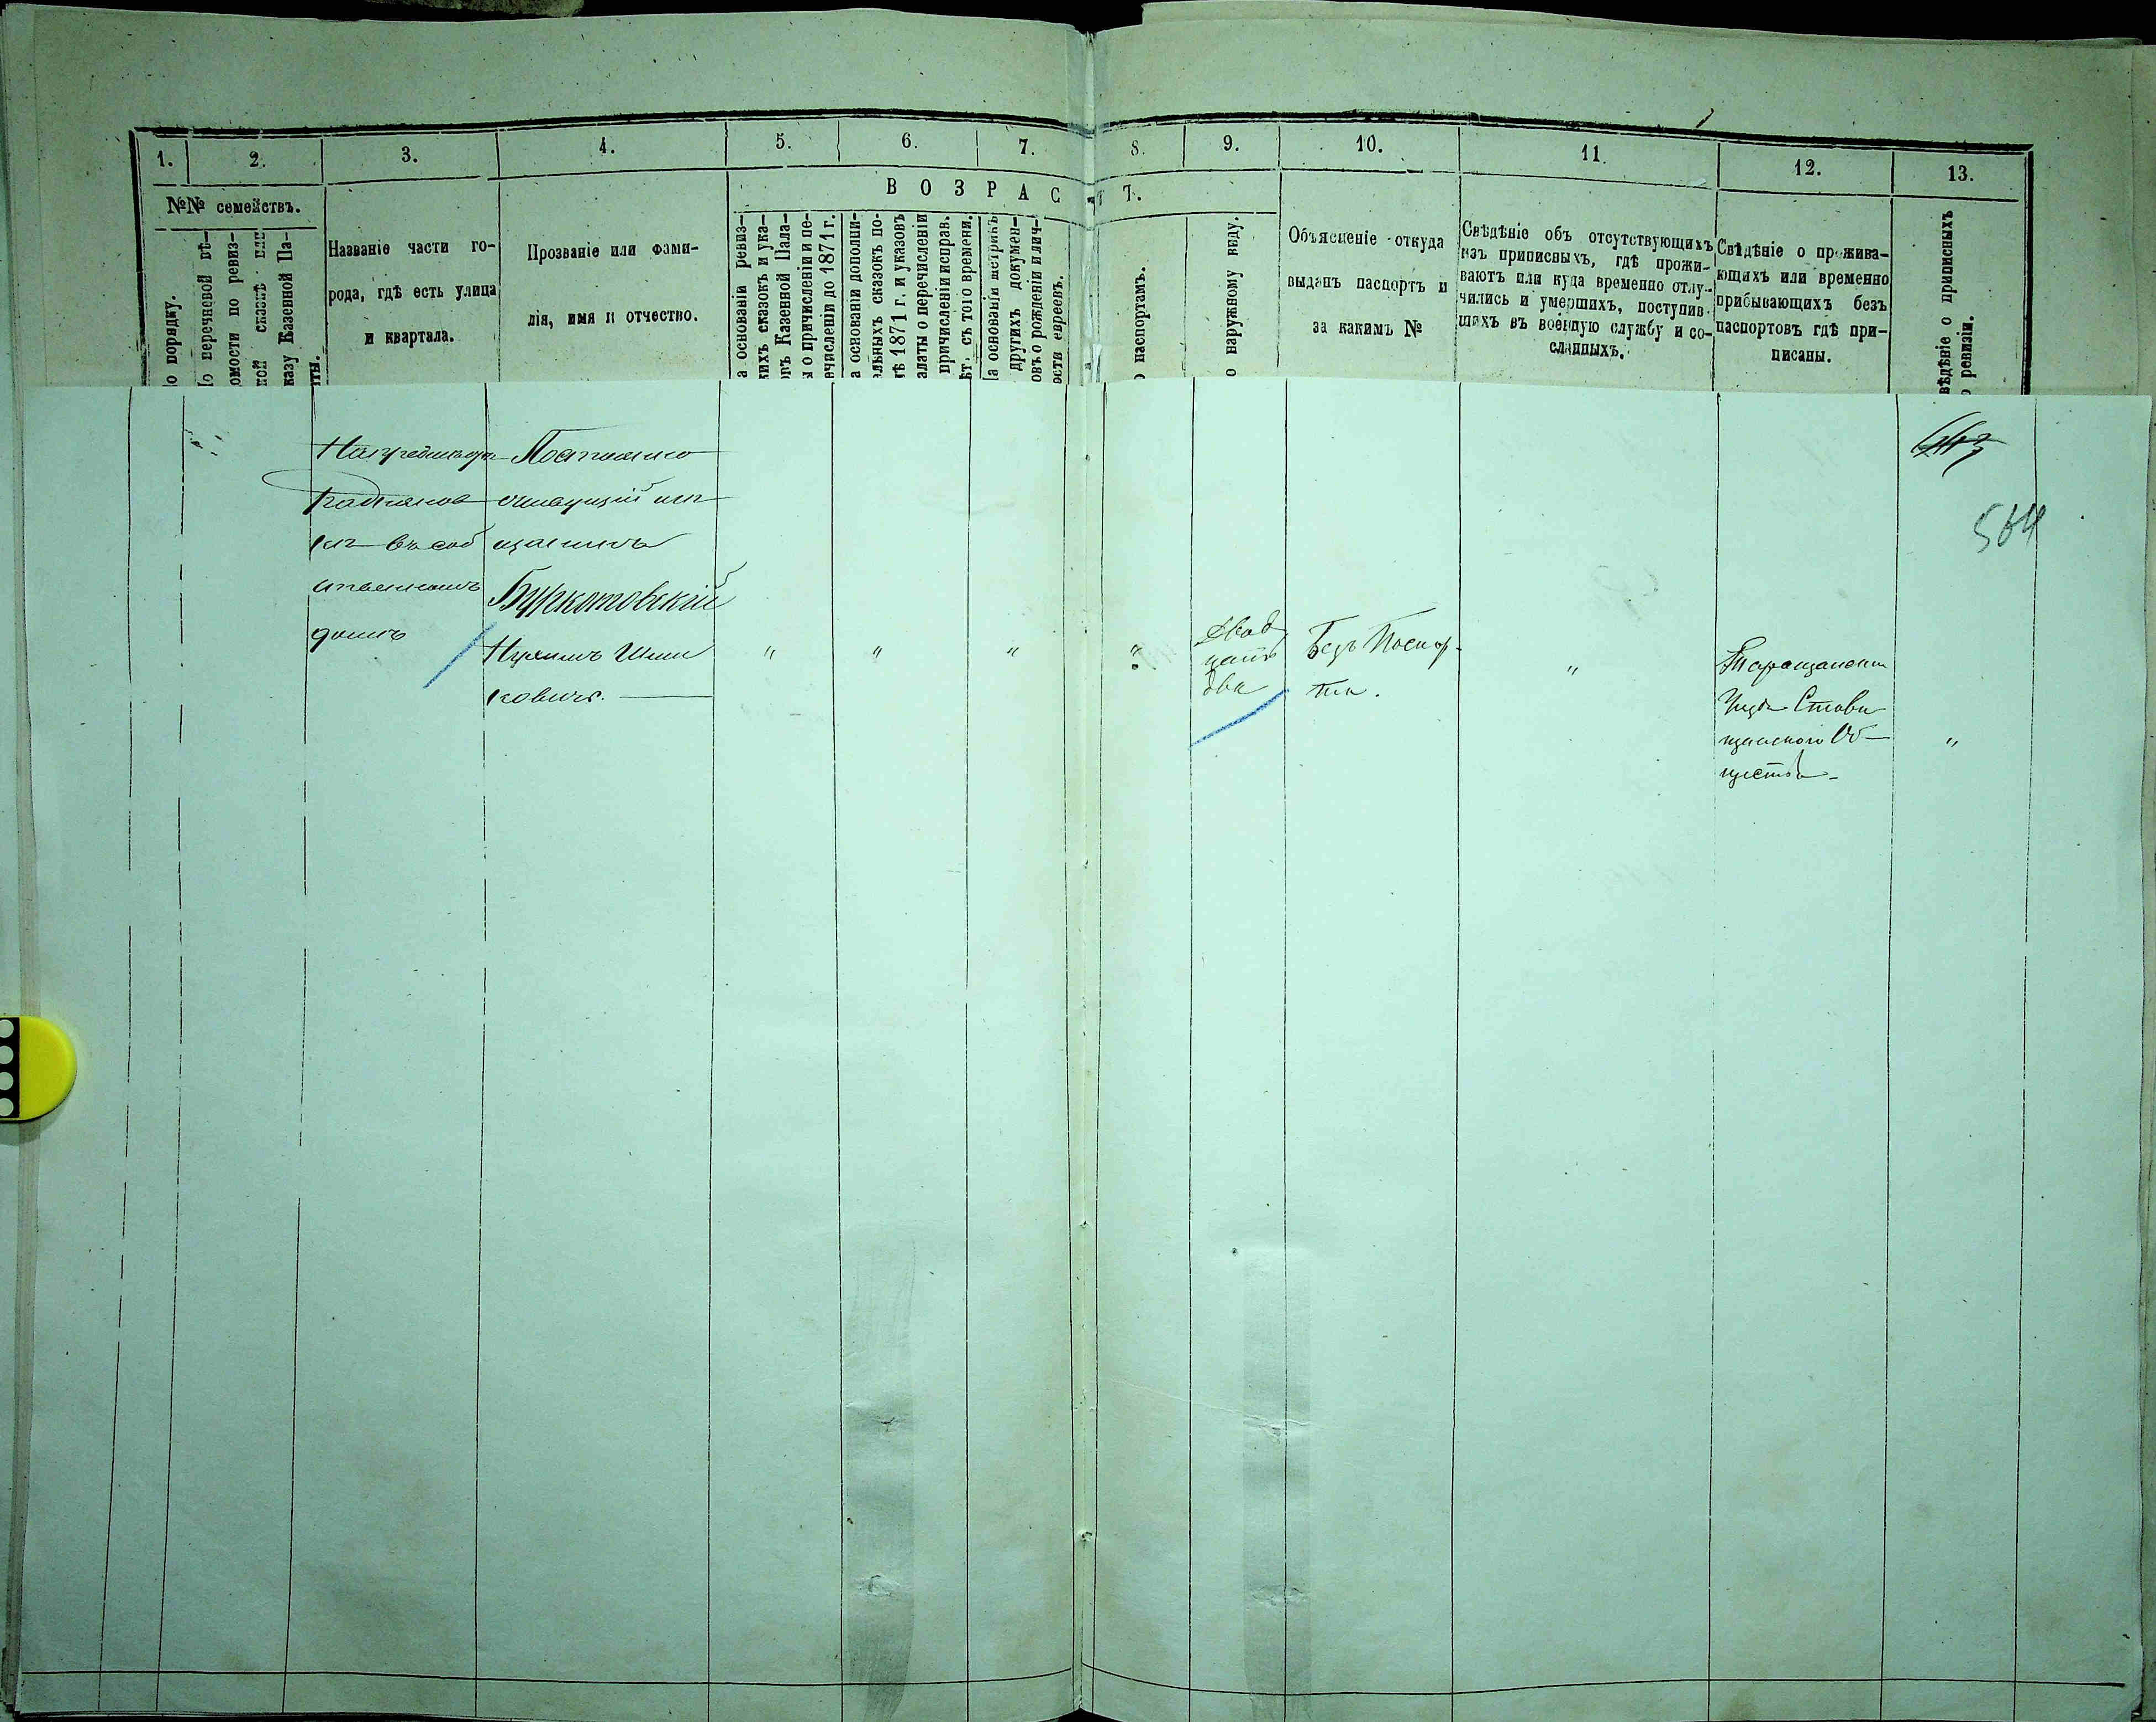 1.
2.
3.
4.
5.
6.
7.
8.
9.
10.
11.
12.
13.
№№ семействъ.
о порядку.
о перечневой вѣ-
омости по ревиз-
казу Казенной Па-
Названіе части го-
рода, гдѣ есть улица
и квартала.
Прозваніе или фами-
лія, имя и отчество.
ВОЗРАСТ.
а основаніи ревиз-
кихъ сказокъ и ука-
овъ Казенной Пала-
ы о причисленіи и пе-
ечисленіи до 1871 г.
а основаніи дополни-
ельныхъ сказокъ по-
лѣ 1871 г. и указовъ
алаты о перечисленіи
причисленіи исправ.
ѣт. съ того времени.
а основаніи метрикъ
другихъ докумен-
овъ о рожденіи и лич-
ости евреевъ.
о паспортамъ.
о наружному виду.
Объясненіе откуда
выданъ паспортъ и
за какимъ №
Свѣдѣніе объ отсутствующихъ
изъ приписныхъ, гдѣ прожи-
ваютъ или куда временно отлу-
чились и умершихъ, поступив-
шихъ въ военную службу и со-
сланныхъ.
Свѣдѣніе о прожива-
ющихъ или временно
прибывающихъ безъ
паспортовъ гдѣ при-
писаны.
вѣдѣніе о приписныхъ
о ревизіи.
въ соб
ственномъ
домѣ
Постоянно
щанинъ
Буркотовскій
Шмил
ковичъ.
"
"
"
"
Двад
цать
два
Безъ Паспор-
та.
"
Таращанскаго
Уѣзда Стави
щанскаго Об-
щества
"
564